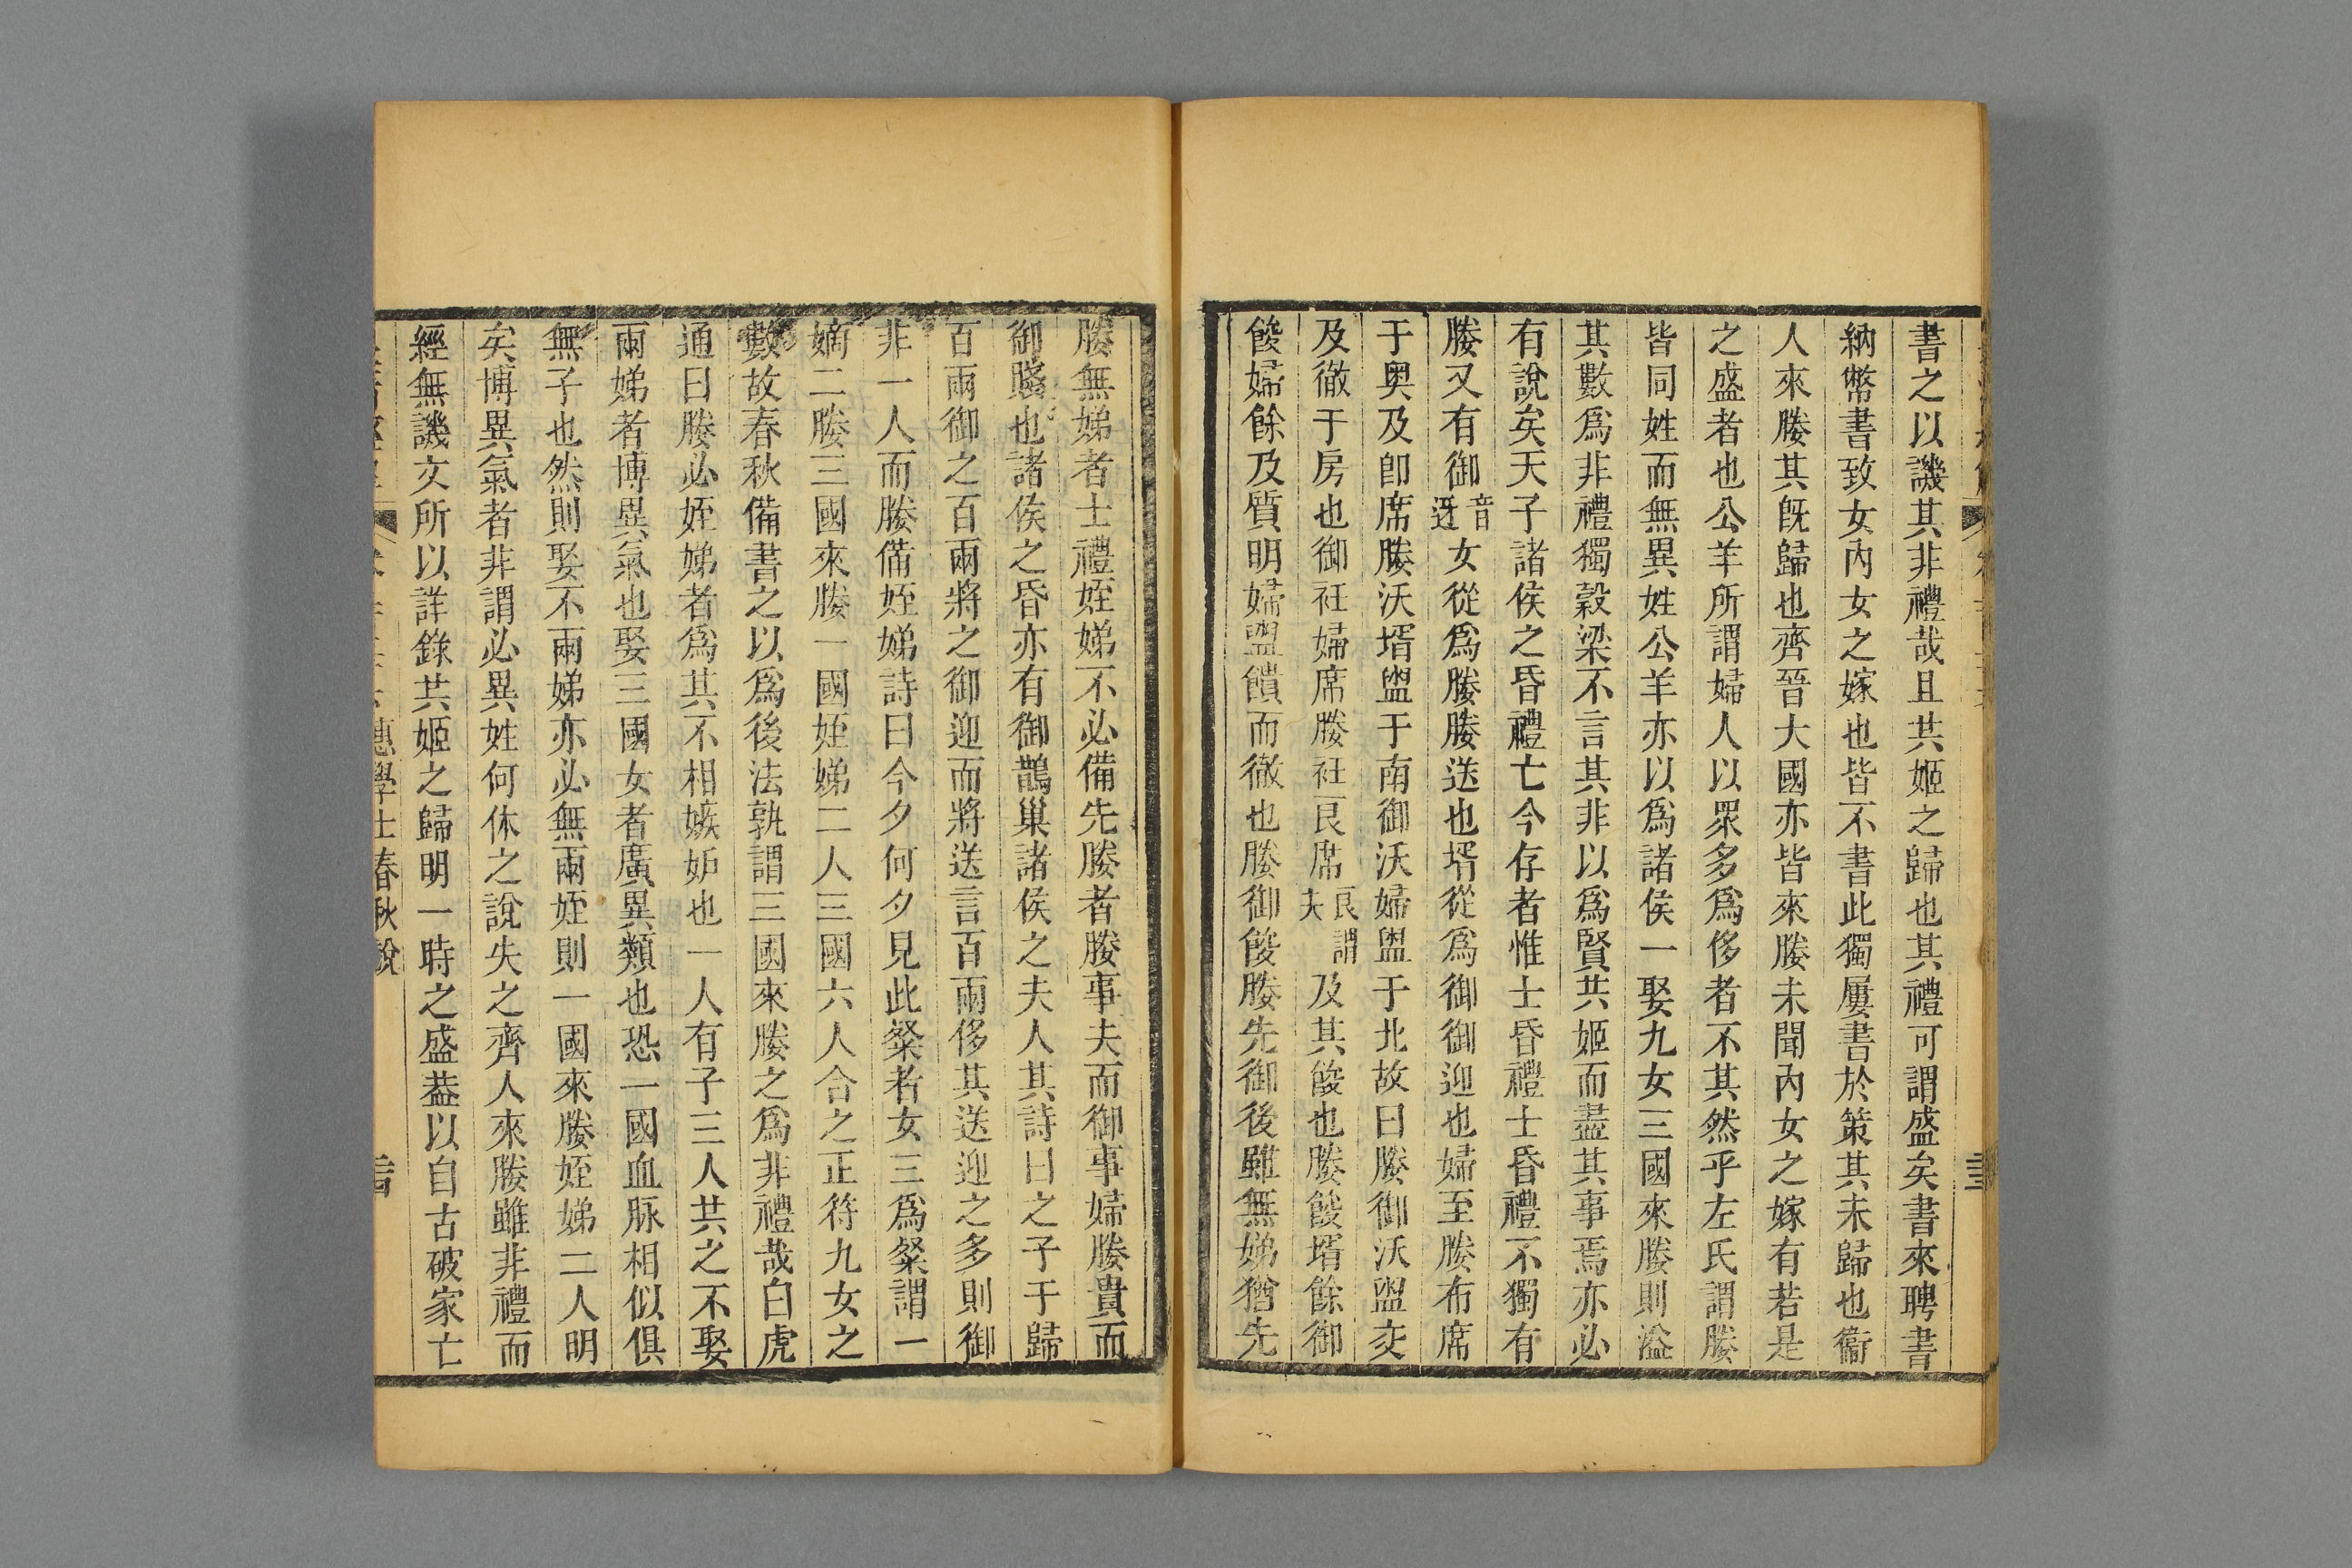 書之以譏其非禮哉且共姬之歸也其禮可謂盛矣書來聘書
納幣書致女內女之嫁也皆不書此獨屢書於策其未歸也衞
人來媵其旣歸也齊晉大國亦皆來媵未聞內女之嫁有若是
之盛者也公羊所謂婦人以眾多爲侈者不其然乎左氏謂媵
皆同姓而無異姓公羊亦以爲諸侯一娶九女三國來媵則溢
其數爲非禮獨穀梁不言其非以爲賢共姬而盡其事焉亦必
有說矣天子諸侯之昏禮亡今存者惟士昏禮士昏禮不獨有
媵又有御音迓女從爲媵媵送也壻從爲御御迎也婦至媵布席
于奧及卽席媵沃壻盥于南御沃婦盥于北故曰媵御沃盥交
及徹于房也御衽婦席媵衽良席良謂夫及其餕也媵餕壻餘御
餕婦餘及質明婦盥饋而徹也媵御餕媵先御後雖無娣猶先
媵無娣者士禮姪娣不必備先媵者媵事夫而御事婦媵貴而
御賤也諸侯之昏亦有御鵲巢諸侯之夫人其詩曰之子于歸
百兩御之百兩將之御迎而將送言百兩侈其送迎之多則御
非一人而媵備姪娣詩曰今夕何夕見此粲者女三爲粲謂一
嫡二媵三國來媵一國姪娣二人三國六人合之正符九女之
數故春秋備書之以爲後法孰謂三國來媵之爲非禮哉白虎
通曰媵必姪娣者爲其不相嫉妒也一人有子三人共之不娶
兩娣者博異氣也娶三國女者廣異類也恐一國血脉相似俱
無子也然則娶不兩娣亦必無兩姪則一國來媵姪娣二人明
矣博異氣者非謂必異姓何休之說失之齊人來媵雖非禮而
經無譏文所以詳錄共姬之歸明一時之盛葢以自古破家亡
惠學士春秋說